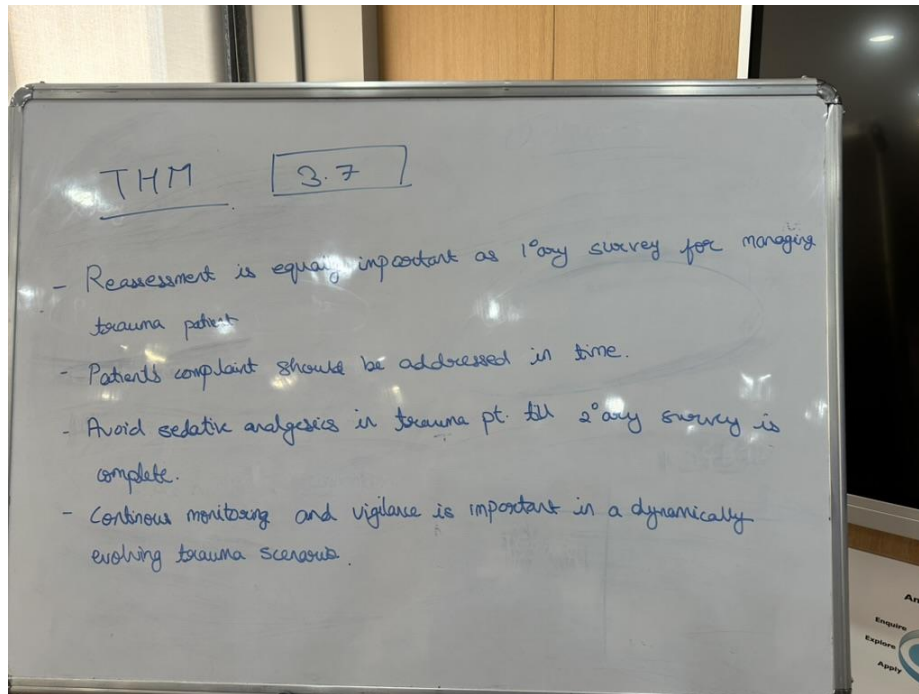 THM 3.7
- Reassessment is equally important as 1°ary survey for managing
trauma patient
- Patients complaint should be addressed in time.
- Avoid sedative analgesics in trauma pt. till 2°ary survey is
complete.
- Continous monitoring and vigilance is important in a dynamically
evolving trauma scenario.
An
Enquire
Explore
Apply